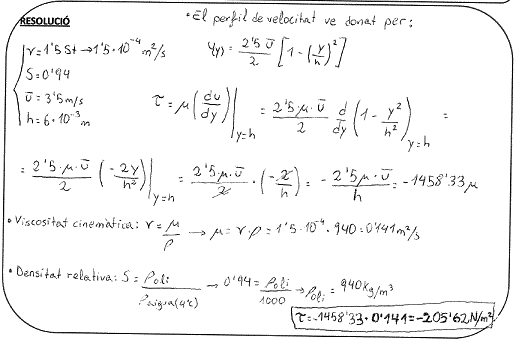 RESOLUCIÓ
• El perfil de velocitat ve donat per:
γ = 1'5 St → 1'5·10⁻⁴ m²/s
u(y) = 2'5 ū / 2 [1 - (y/h)²]
S = 0'94
ū = 3'5 m/s
h = 6·10⁻³ m
τ = μ (du/dy)|y=h = 2'5 μ·ū / 2 d/dy (1 - y²/h²)y=h =
= 2'5·μ·ū / 2 (-2y/h²)|y=h = 2'5·μ·ū / 2 · (-2/h) = - 2'5 μ·ū / h = -1458'33 μ
• Viscositat cinemàtica: γ = μ/ρ → μ = γ·ρ = 1'5·10⁻⁴·940 = 0'141 m²/s
• Densitat relativa: S = ρoli / ρaigua(4ºC) → 0'94 = ρoli / 1000 → ρoli = 940 Kg/m³
τ = -1458'33 · 0'141 = -205'62 N/m²